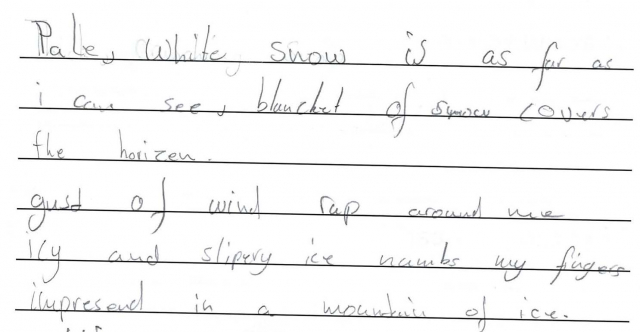 Pale, White snow is as far as
i can see, blancket of covers
the horizen.
gust of wind rap around me
icy and slipery ice numbs my fingers
impresend in a mountain of ice.